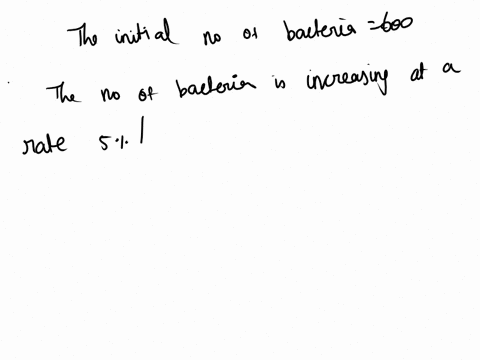 The initial no of bacteria = 600
The no of bacteria is increasing at a
rate 5% |